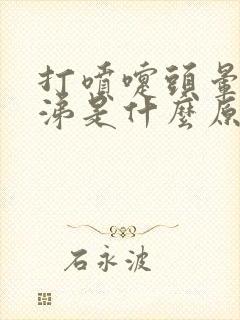 打噴嚏頭暈
涕是什麼原
石永波